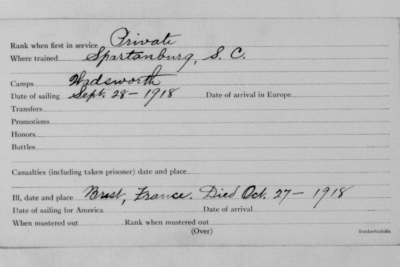 Rank when first in service Private
Where trained Spartanburg, S. C.
Camps Wadsworth
Date of sailing Sept. 28-1918 Date of arrival in Europe
Transfers
Promotions
Honors
Battles
Casualties (including taken prisoner) date and place
Ill, date and place Brest, France. Died Oct. 27-1918
Date of sailing for America Date of arrival
When mustered out Rank when mustered out
(Over)